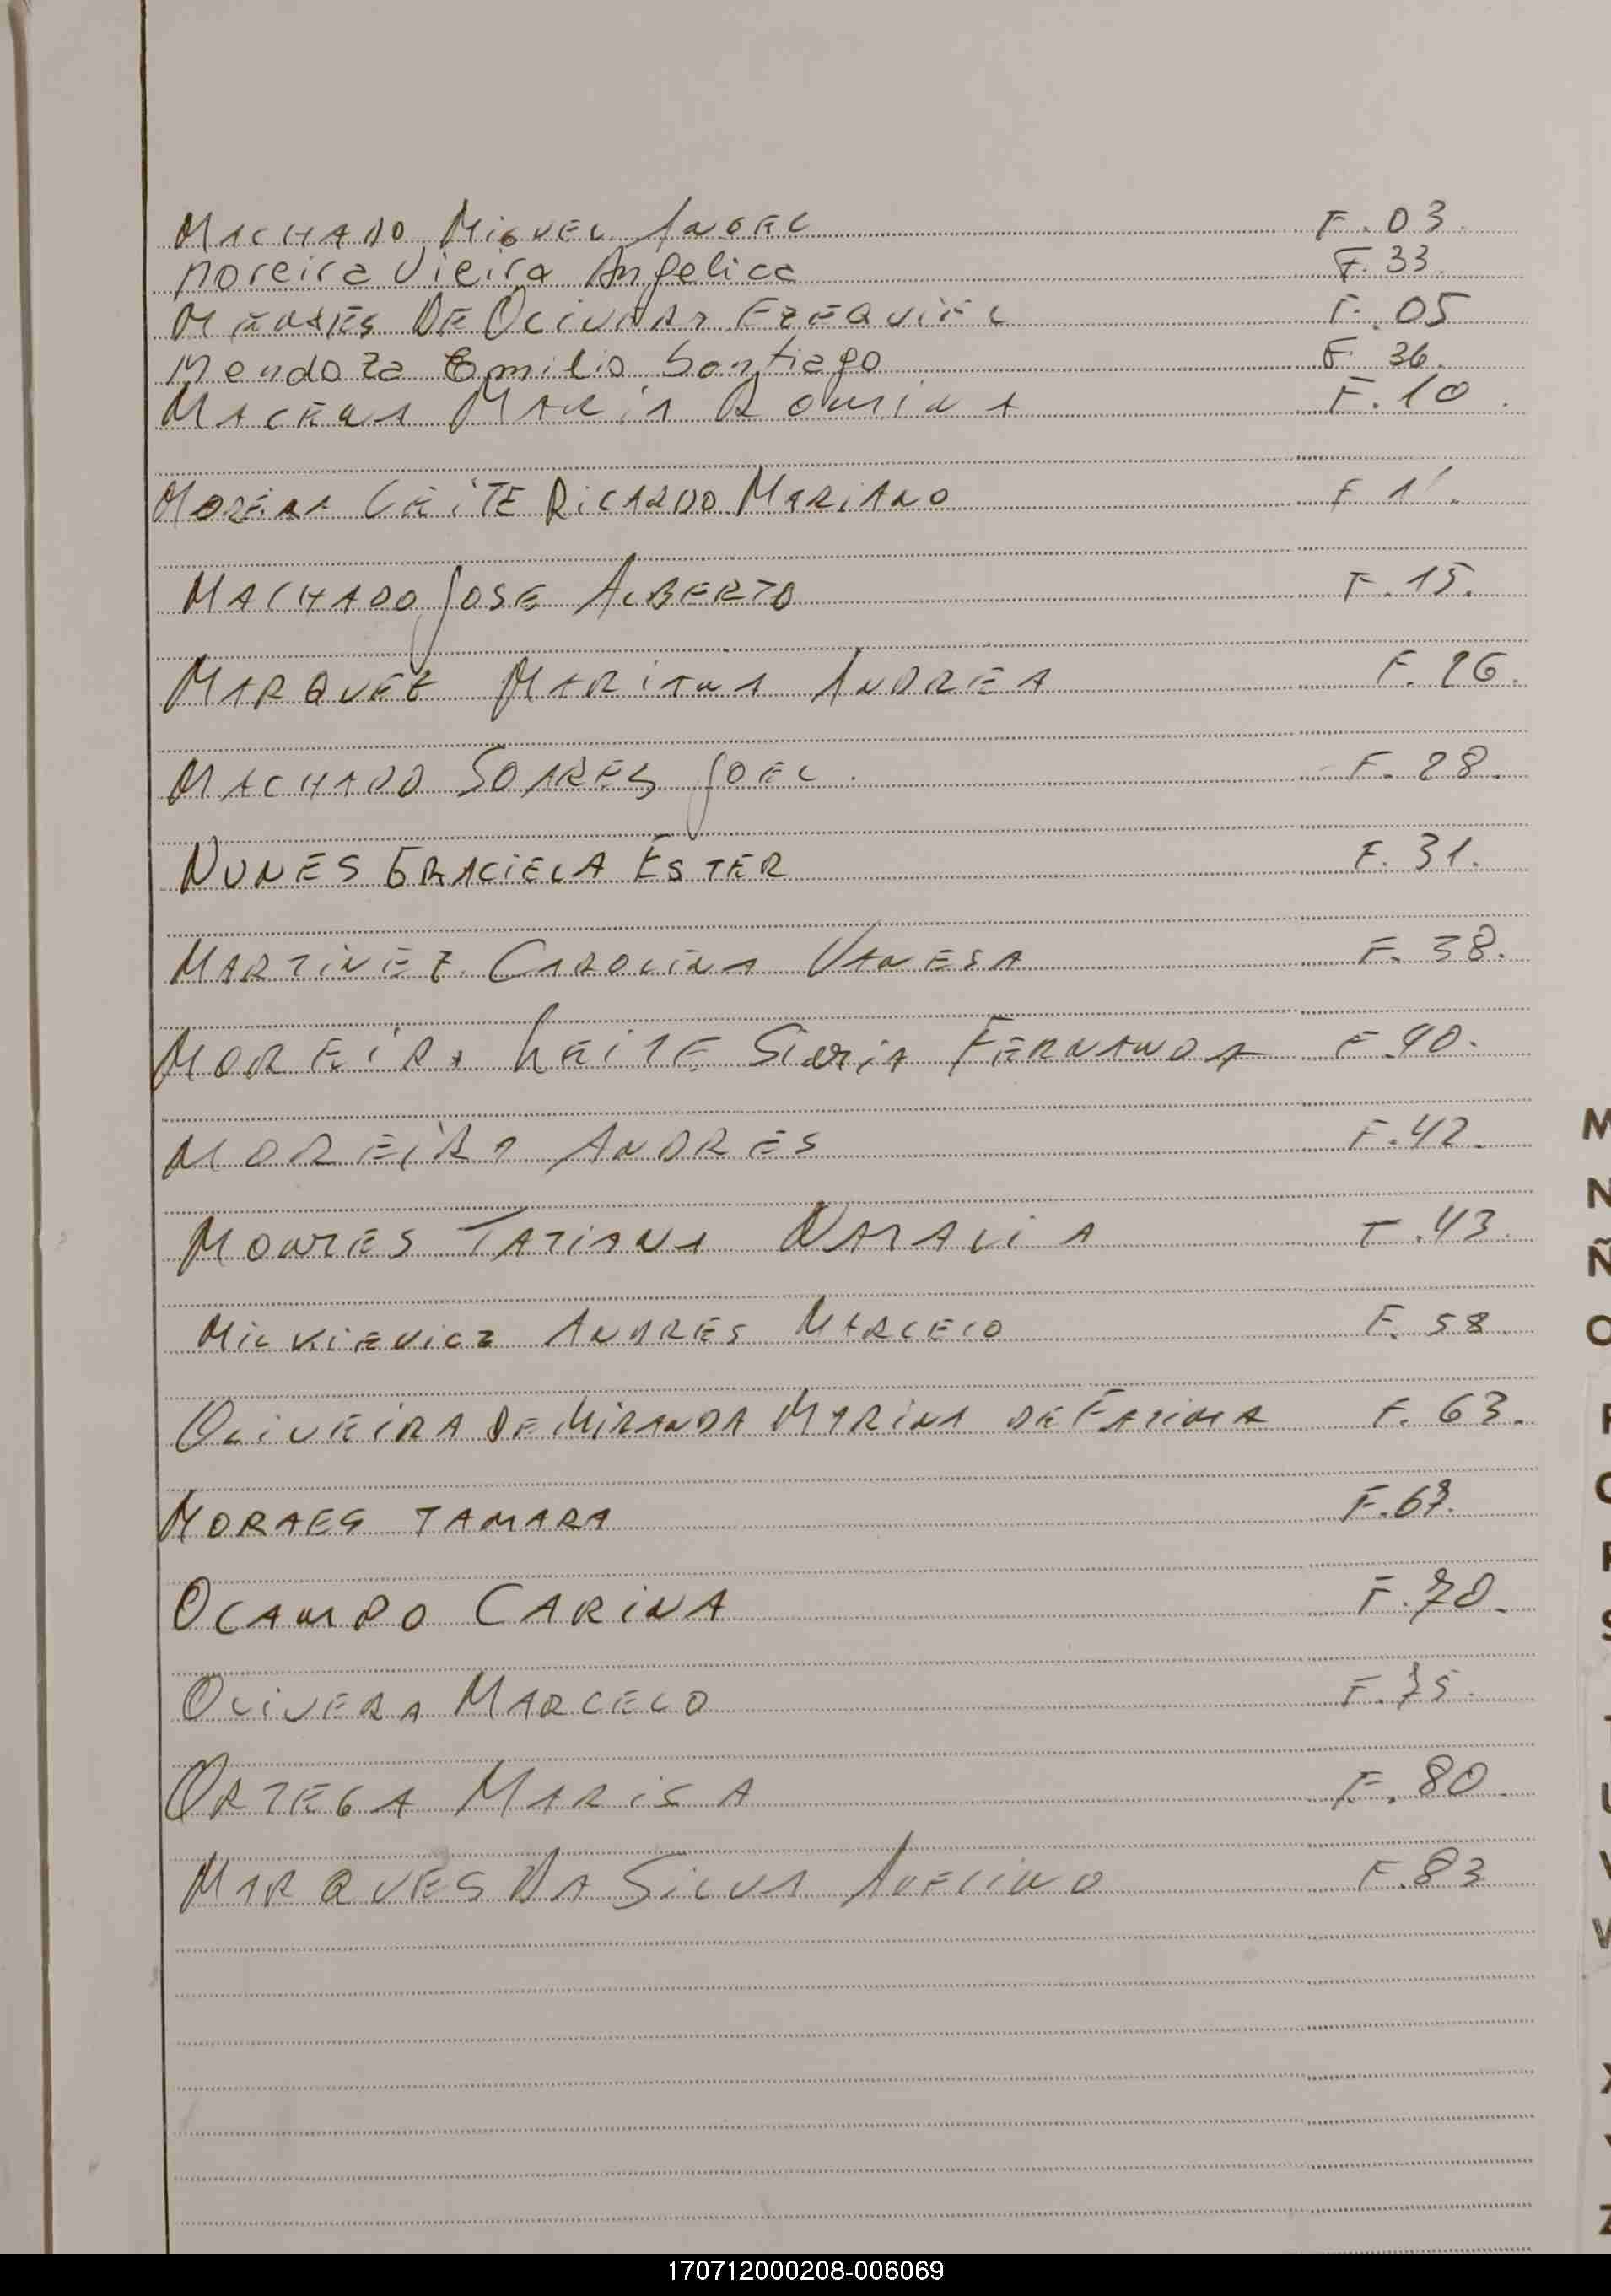 MACHADO MIGUEL ANGEL F. 03.
Moreira Vieira Angelica F. 33.
DE EZEQUIEL F. 05
Mendoza Emilio Santiago F. 36.
MACENA MARIA ROMINA F. 10.
MOREIRA LEITE RICARDO MARIANO F
MACHADO JOSE ALBERTO F. 15.
MARQUEZ MARIANA ANDREA F.
MACHADO SOARES JOEL. F. 28.
NUNES GRACIELA ESTER F. 31.
MARTINEZ CAROLINA VANESA F. 38.
MOREIRA LEITE FERNANDA F. 40.
MOREIRA ANDRES F. 42.
MONTES TATIANA NATALIA F. 43.
MICKIEVICZ ANDRES MARCELO F. 58.
OLIVEIRA DE MIRANDA MARINA DE FATIMA F. 63.
MORAES TAMARA F. 67.
OCAMPO CARINA F. 70.
OLIVERA MARCELO F. 75.
ORTEGA MARISA F. 80.
MARQUES DA SILVA AVELINO F. 83
M
N
Ñ
O
S
U
V
W
X
Z
170712000208-006069